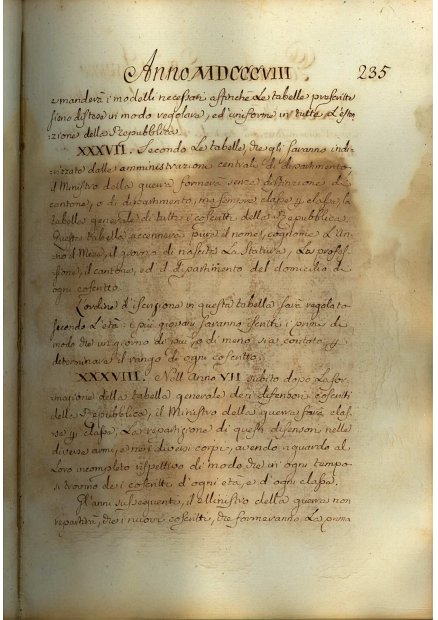 Anno MDCCCVIII. 235
e manderà i modelli necessari affinchè le tabelle proscritte
siano distese in modo regolare, ed uniforme in tutta l'esten=
:zione della Repubblica.
XXXVII. Secondo le tabelle, che gli saranno indi=
rizzate dalle amministrazione centrale di dipartimento,
il Ministro della guerra formerà senza distinzione di
cantone, o di dipartimento, ma sempre classe p classe, la
tabella generale di tutti i coscritti della Repubblica.
Questa tabella accennerà pure il nome, cognome l'An=
no il Mese, il giorno di nascita la statura, la profes=
sione, il cantone, ed il dipartimento del domicilio di
ogni coscritto.
L'ordine d'iscrizione in questa tabella sarà regolato
secondo l'età: i più giovani saranno iscritti i primi di
modo che un giorno di più, o di meno sia contato p
determinare il rango di ogni coscritto.
XXXVIII. Nell'Anno VII subito dopo la for=
mazione della tabella generale dei difensori coscritti
della Repubblica, il Ministro della guerra farà clas=
se p classe, la repartizione di questi difensori nelle
diverse armi, e nei diversi corpi, avendo riguardo al
loro incompleto rispettivo di modo che in ogni tempo
si trovino dei coscritti d'ogni età, e d'ogni classe.
Gl'anni susseguenti, il Ministro della guerra non
repartirà, che i nuovi coscritti, che formeranno la prima